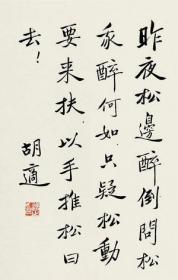 昨夜松邊醉倒問松
我醉何如只疑松動
要来扶以手推松曰
去！
胡適